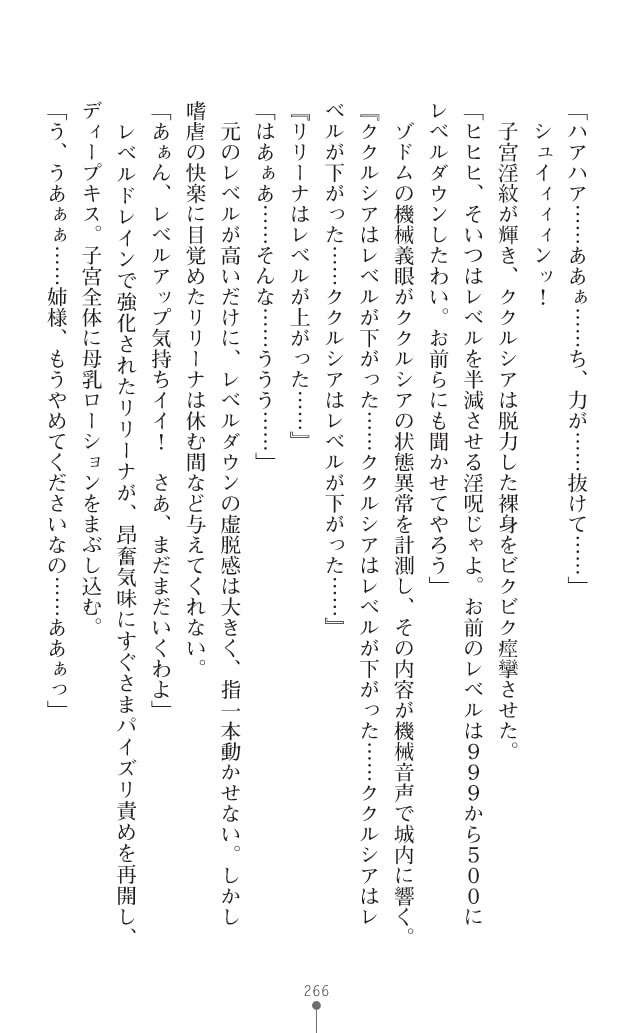 「ハアハア……ああぁ……ち、力が……抜けて……」
シュイィィィンッ！
子宮淫紋が輝き、ククルシアは脱力した裸身をビクビク痙攣させた。
「ヒヒヒ、そいつはレベルを半減させる淫呪じゃよ。お前のレベルは９９９から５００に
レベルダウンしたわい。お前らにも聞かせてやろう」
ゾドムの機械義眼がククルシアの状態異常を計測し、その内容が機械音声で城内に響く。
『ククルシアはレベルが下がった……ククルシアはレベルが下がった……ククルシアはレ
ベルが下がった……ククルシアはレベルが下がった……』
『リリーナはレベルが上がった……』
「はあぁあ……そんな……ううう……」
元のレベルが高いだけに、レベルダウンの虚脱感は大きく、指一本動かせない。しかし
嗜虐の快楽に目覚めたリリーナは休む間など与えてくれない。
「あぁん、レベルアップ気持ちイイ！　さあ、まだまだいくわよ」
レベルドレインで強化されたリリーナが、昂奮気味にすぐさまパイズリ責めを再開し、
ディープキス。子宮全体に母乳ローションをまぶし込む。
「う、うあぁぁ……姉様、もうやめてくださいなの……ああぁっ」
266